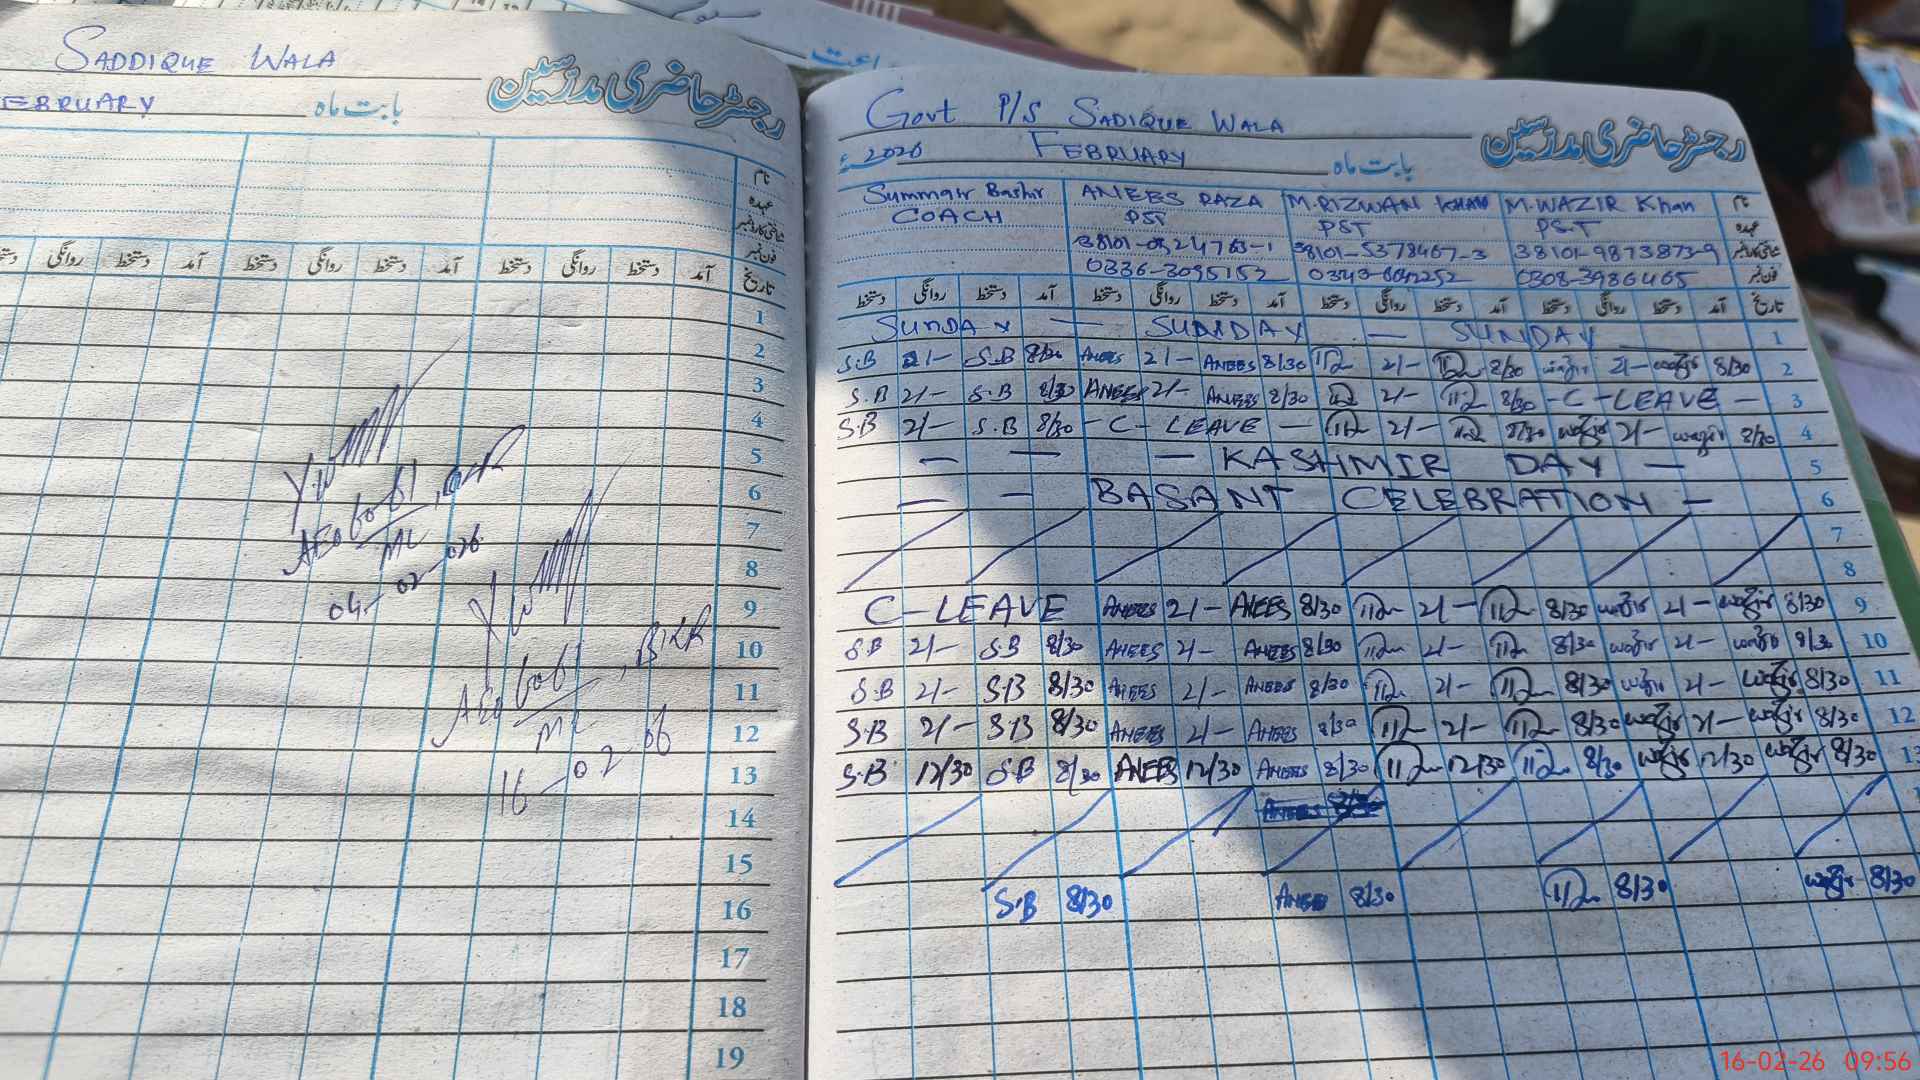 SADDIQUE WALA
رجسٹر حاضری مدرسین
EBRUARY بابت ماہ
نام
عہدہ
شناختی کارڈ نمبر
فون نمبر
تاریخ آمد دستخط روانگی دستخط آمد دستخط روانگی دستخط آمد دستخط روانگی
1
2
3
4
5
6
7
8
9
10
11
12
13
14
15
16
17
18
19
AEO
MC
04-02-026
AEO
MC
16-02-
Govt P/S SADIQUE WALA
رجسٹر حاضری مدرسین
2026ء FEBRUARY بابت ماہ
Summair Bashir ANEES RAZA M.RIZWAN KHAN M.WAZIR Khan نام
COACH PST PST PS.T عہدہ
38101-5378467-3 38101-9873873-9 شناختی کارڈ نمبر
0336-3095152 0308-3986465 فون نمبر
دستخط روانگی دستخط آمد دستخط روانگی دستخط آمد دستخط روانگی دستخط آمد دستخط روانگی دستخط آمد تاریخ
SUNDAY — SUNDAY — SUNDAY 1
S.B 2/- S.B 8/30 ANEES 2/- ANEES 8/30 2/- 8/30 wazir 2/- wazir 8/30 2
S.B 2/- S.B 8/30 ANEES 2/- ANEES 8/30 2/- 8/30 -C-LEAVE - 3
S.B 2/- S.B 8/30 -C- LEAVE - 2/- 8/30 wazir 2/- wazir 8/30 4
— — — KASHMIR DAY — 5
— — BASANT CELEBRATION — 6
7
8
C-LEAVE ANEES 2/- ANEES 8/30 2/- 8/30 wazir 2/- wazir 8/30 9
S.B 2/- S.B 8/30 ANEES 2/- ANEES 8/30 2/- 8/30 wazir 2/- wazir 8/30 10
S.B 2/- S.B 8/30 ANEES 2/- ANEES 8/30 2/- 8/30 wazir 2/- wazir 8/30 11
S.B 2/- S.B 8/30 ANEES 2/- ANEES 8/30 2/- 8/30 wazir 2/- wazir 8/30 12
S.B 12/30 S.B 8/30 ANEES 12/30 ANEES 8/30 12/30 8/30 wazir 12/30 wazir 8/30 13
S.B 8/30 ANEES 8/30 8/30 wazir 8/30
16-02-26 09:56